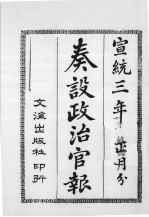 宣統三年月分
奏設政治官報
文海出版社印所